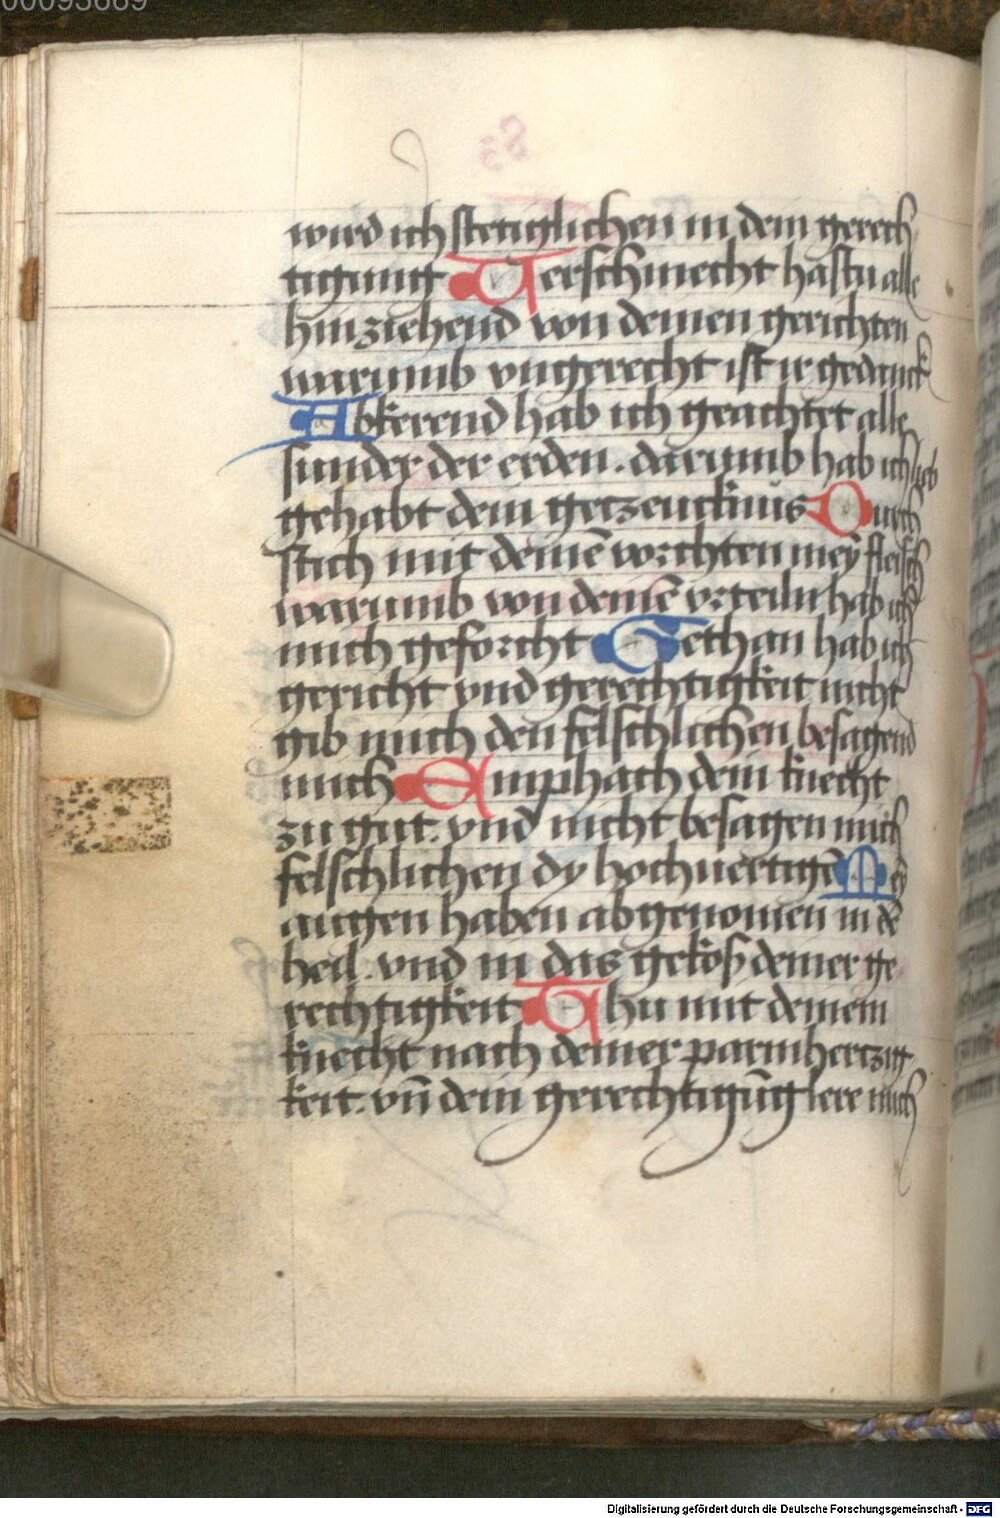 00093889
wird ich stetiglichen in dem gerech
tigung Verschmecht hastu alle
hinziehend von deinen gerichten
warumb vngerecht ist ir gedanck
Abkerend hab ich geachtet alle
sunder der erden. darumb hab ich lieb
gehabt dem getzeucknus Durch
stich mit deinē vorchten mey fleisch
warumb von deinē vrteiln hab ich
mich geforcht Gethan hab ich
gericht vnd gerechtigkeit nicht
gib mich den felschlichen besagend
mich Emphach dein knecht
zu gut. vnd nicht besagen mich
felschlichen dy hochuertigē Mey
augen haben abgenomen in dē
heil. vnd in das gekoß deiner ge
rechtigkeit Thu mit deinem
knecht nach deiner parmhertzig
keit. vn̄ dein gerechtigūg lere mich
Digitalisierung gefördert durch die Deutsche Forschungsgemeinschaft - DFG